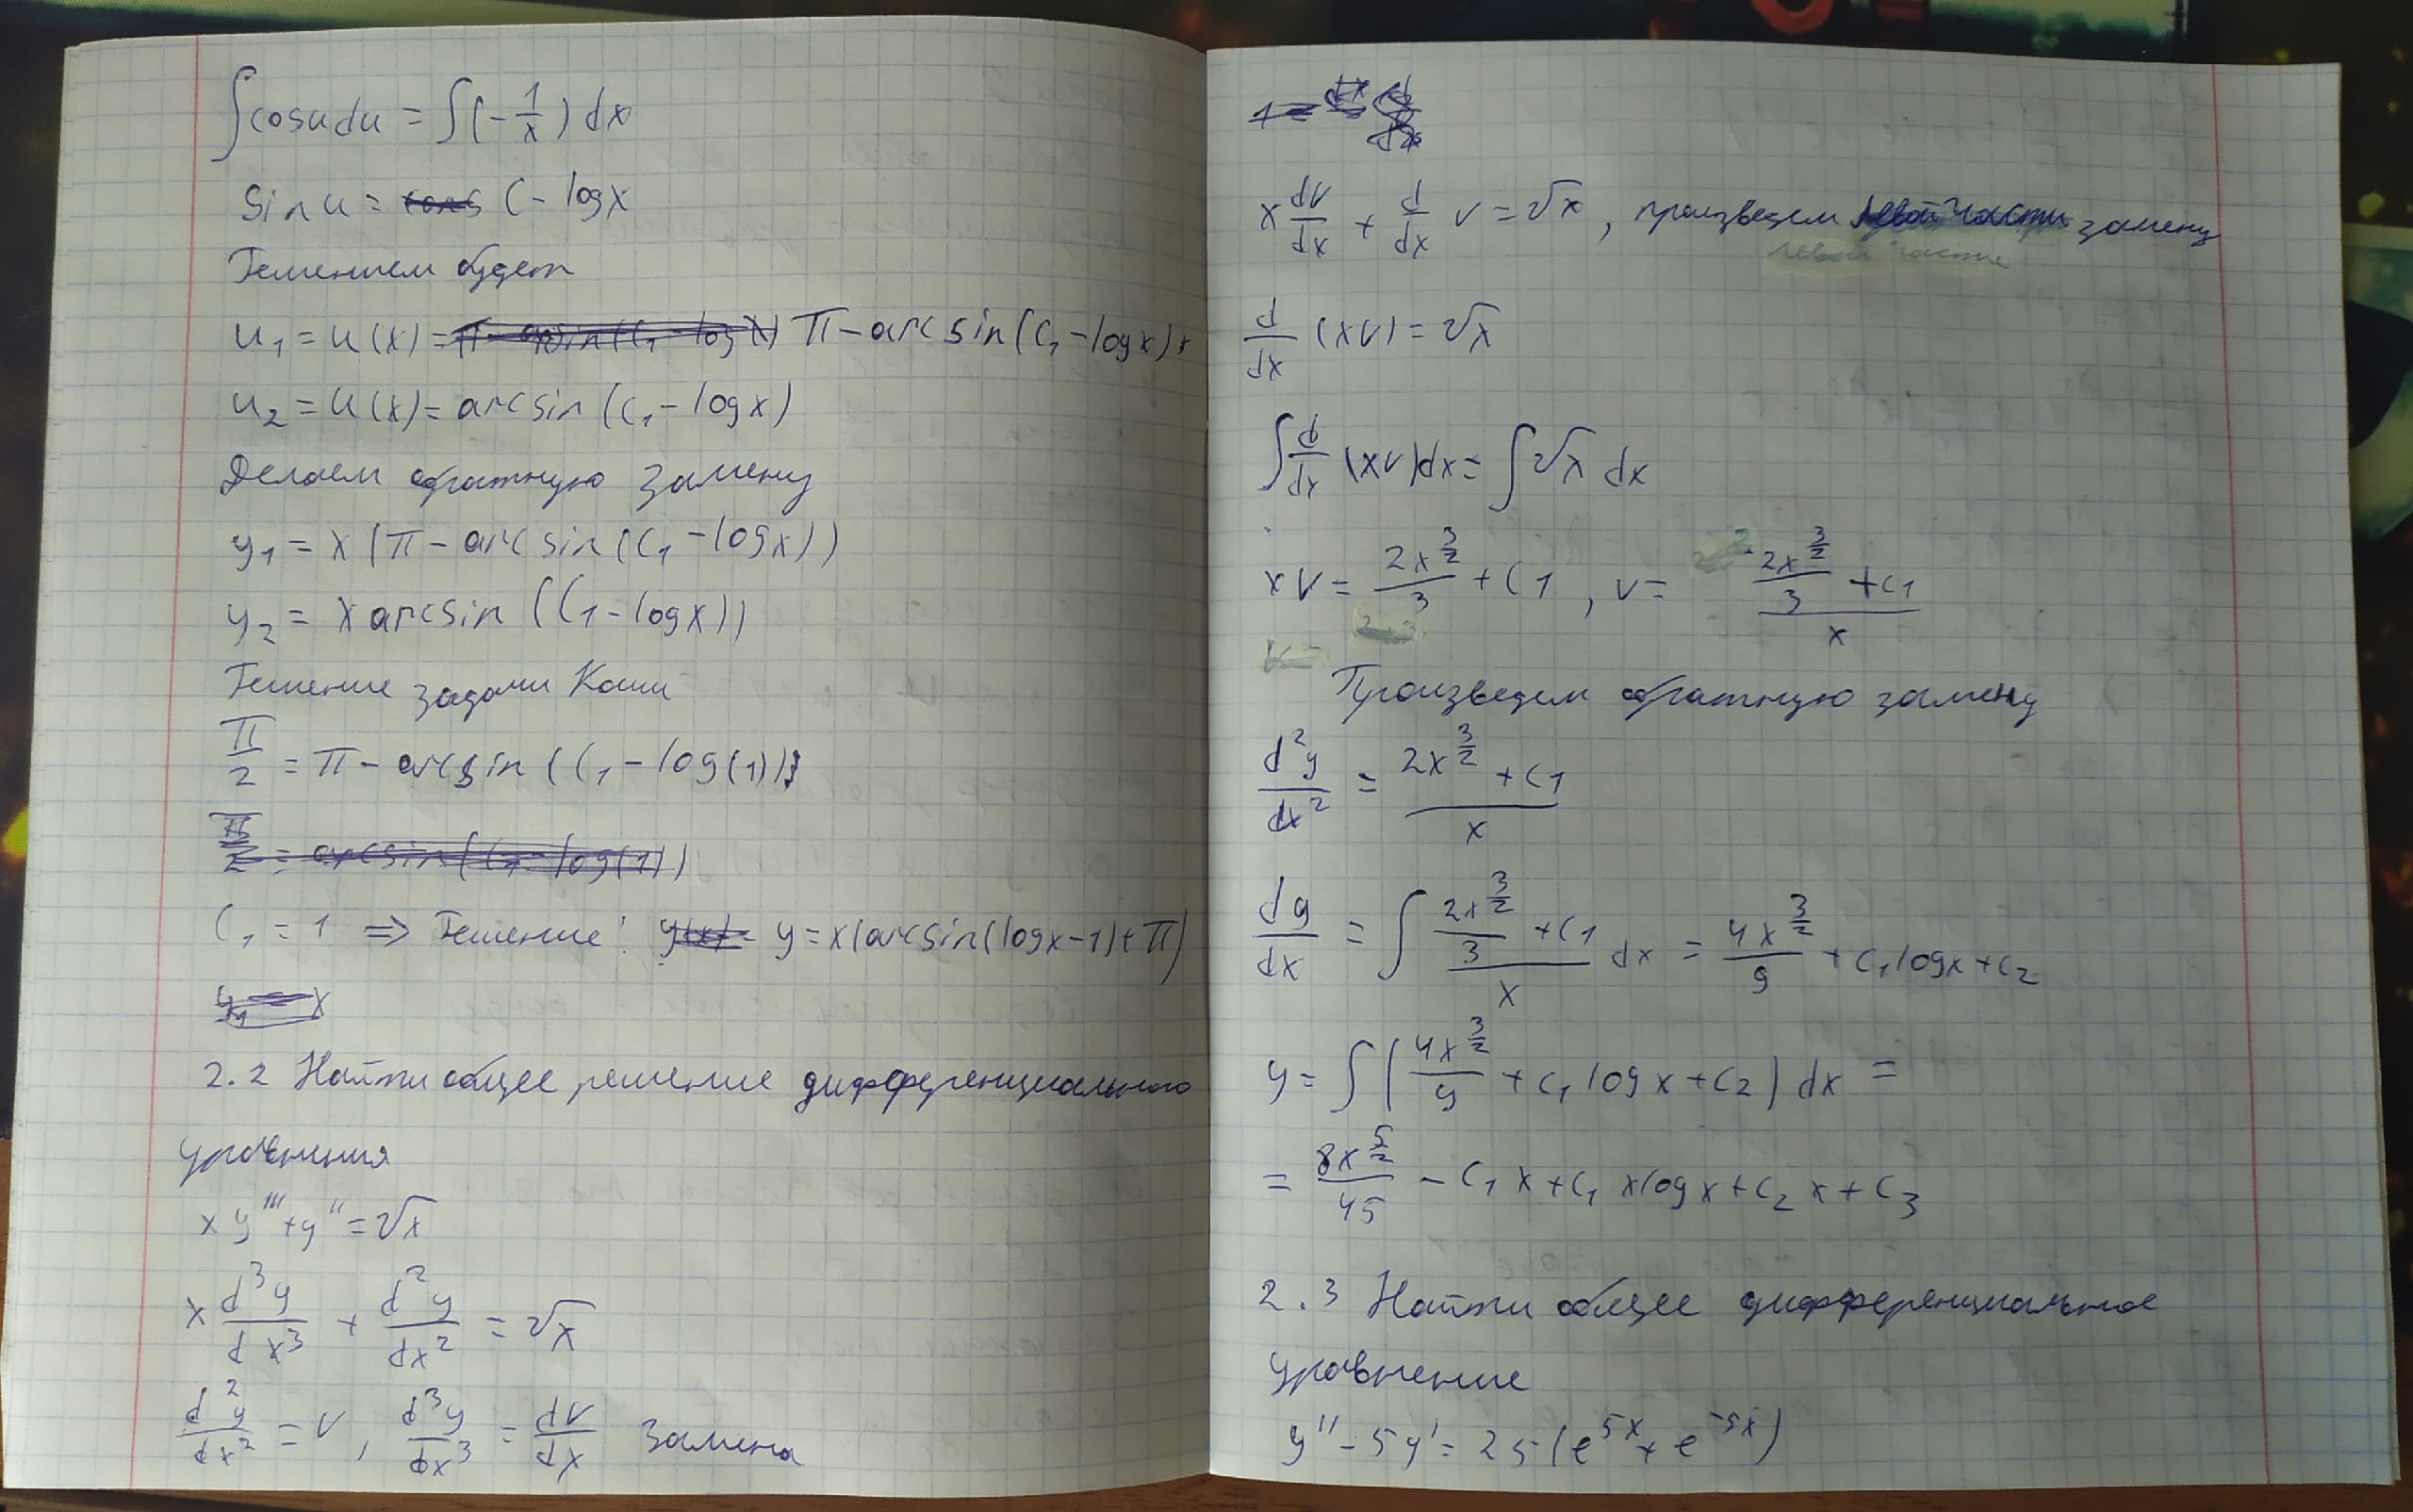 ∫cosudu = ∫(-1/x) dx
sin u = C - logx
Решением будет
u₁ = u(x) = π - arcsin(C₁ - logx)
u₂ = u(x) = arcsin(C₁ - logx)
Делаем обратную замену
y₁ = x(π - arcsin(C₁ - logx))
y₂ = x arcsin(C₁ - logx))
Решение задачи Коши
π/2 = π - arcsin(C₁ - log(1))
π/2 = arcsin(C₁ - log(1))
C₁ = 1 => Решение: y(x)= y = x(arcsin(logx-1)+π)
y₁ = x
2.2 Найти общее решение дифференциального
уравнения
x y''' + y'' = √x
x d³y/dx³ + d²y/dx² = √x
d²y/dx² = v, d³y/dx³ = dv/dx замена
x dv/dx + d/dx v = √x, произведем левой части замену
левой части
d/dx (xv) = √x
∫ d/dx (xv)dx = ∫ √x dx
xv = 2x^(3/2)/3 + C1, v = (2x^(3/2)/3 + C1)/x
Произведем обратную замену
d²y/dx² = (2x^(3/2) + C1)/x
dy/dx = ∫ (2x^(3/2)/3 + C1)/x dx = 4x^(3/2)/9 + C₁logx + C₂
y = ∫ (4x^(3/2)/9 + C₁ log x + C₂) dx =
= 8x^(5/2)/45 - C₁ x + C₁ x log x + C₂ x + C₃
2.3 Найти общее дифференциальное
уравнение
y'' - 5y' = 25(e^(5x) + e^(-5x))